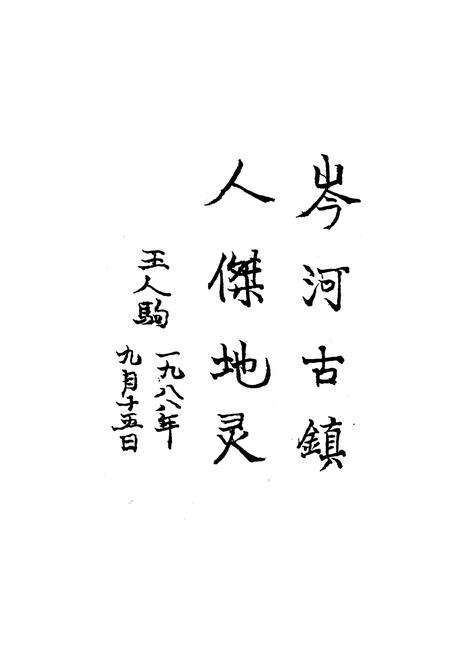 岑河古鎮
人傑地灵
王人駒
一九八八年
九月十五日